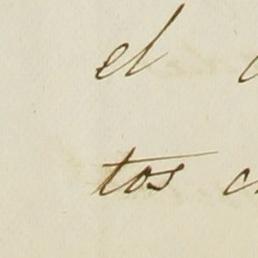 el
tos